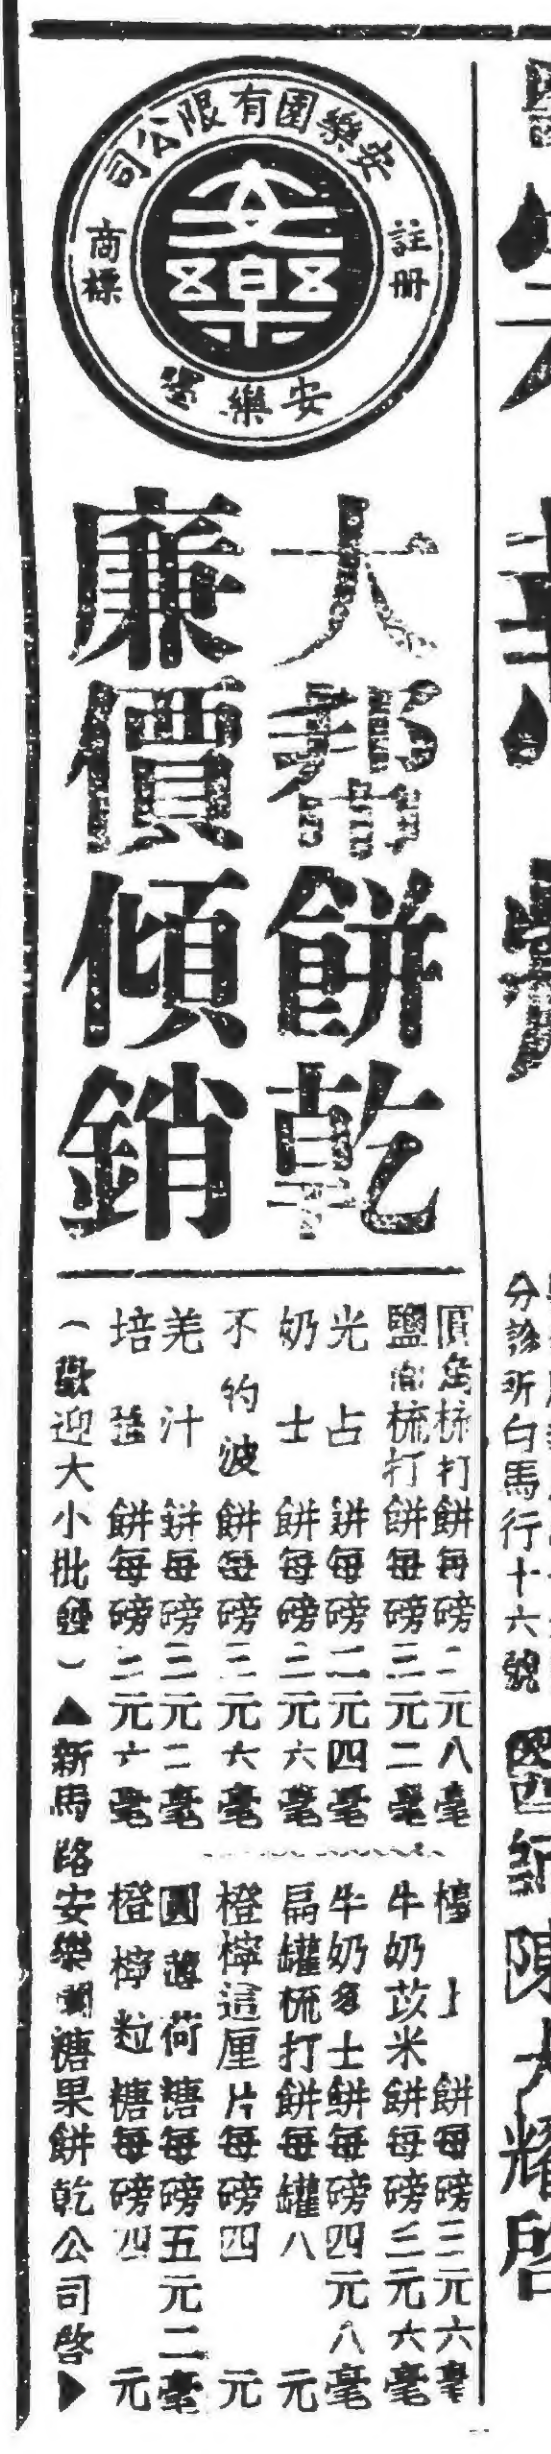 安樂園有限公司
註冊
商標
安樂
大幫餅乾
廉價傾銷
圓角梳打餅每磅二元八毫
鹽 梳打餅每磅三元二毫
光占餅每磅二元四毫
奶士餅每磅三元六毫
不的波餅每磅三元六毫
羌汁餅每磅三元二毫
培 餅每磅二元六毫
檸 餅每磅三元六毫
牛奶苡米餅每磅三元六毫
牛奶多士餅每磅四元八毫
扁罐梳打餅每罐八元
橙檸這厘片每磅四元
圓薄荷糖每磅五元二毫
橙檸粒糖每磅四元
（歡迎大小批 ）▲新馬路安樂園糖果餅乾公司啓▼
分診所白馬行十六號
陳大耀啓